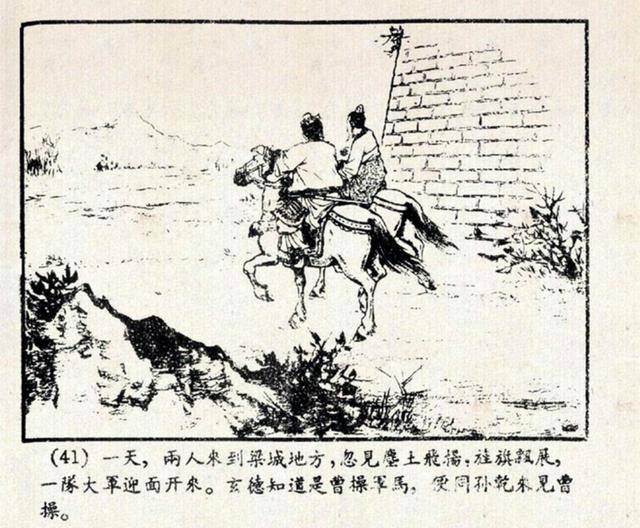 (41) 一天，兩人來到梁城地方，忽見塵土飛揚，旌旗飄展，
一隊大軍迎面开來。玄德知道是曹操軍馬，便同孙乾來見曹
操。